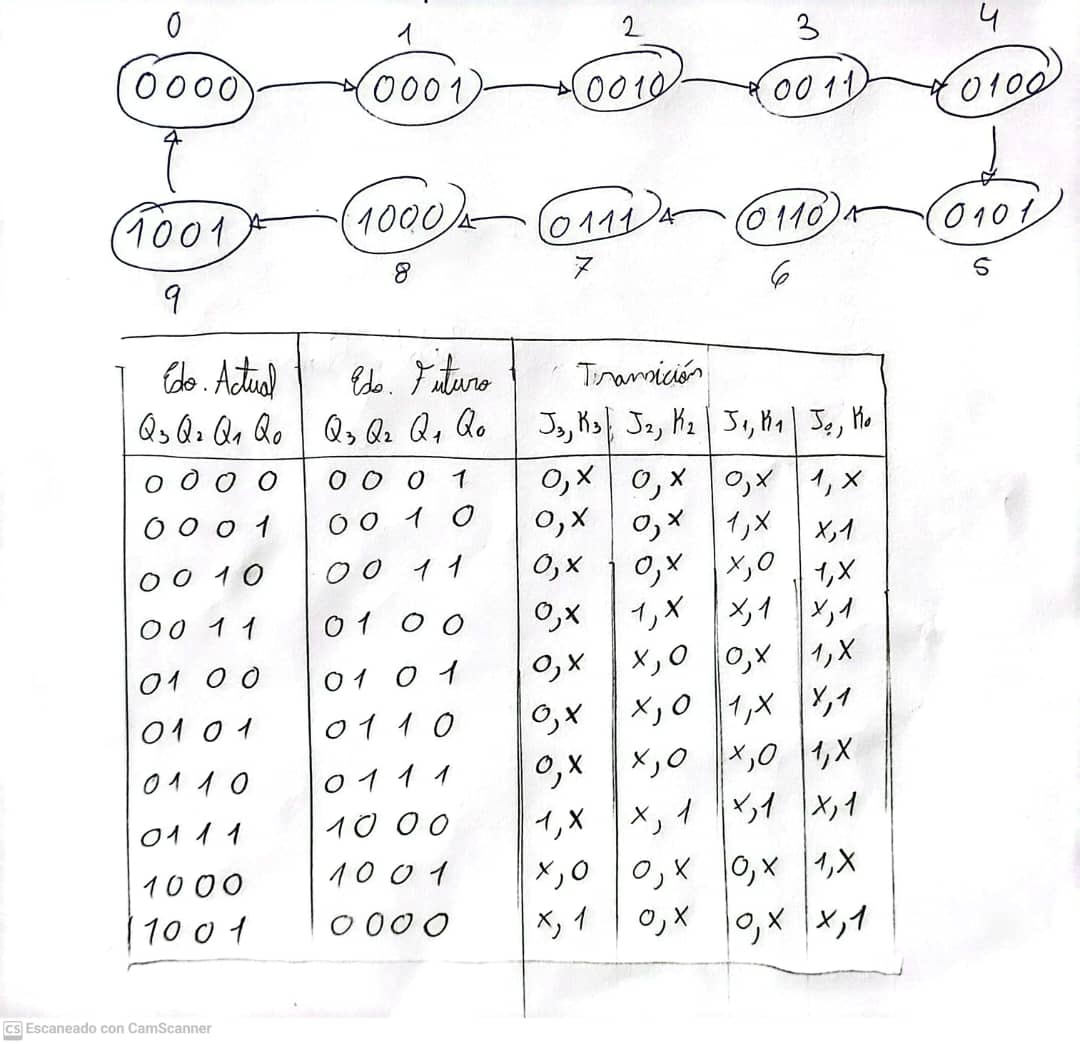 0 1 2 3 4
0000 0001 0010 0011 0100
1001 1000 0111 0110 0101
9 8 7 6 5
Edo. Actual Edo. Futuro Transición
Q3 Q2 Q1 Q0 Q3 Q2 Q1 Q0 J3, K3 J2, K2 J1, K1 J0, K0
0 0 0 0 0 0 0 1 0,X 0,X 0,X 1,X
0 0 0 1 0 0 1 0 0,X 0,X 1,X X,1
0 0 1 0 0 0 1 1 0,X 0,X X,0 1,X
0 0 1 1 0 1 0 0 0,X 1,X X,1 X,1
0 1 0 0 0 1 0 1 0,X X,0 0,X 1,X
0 1 0 1 0 1 1 0 0,X X,0 1,X X,1
0 1 1 0 0 1 1 1 0,X X,0 X,0 1,X
0 1 1 1 1 0 0 0 1,X X,1 X,1 X,1
1 0 0 0 1 0 0 1 X,0 0,X 0,X 1,X
1 0 0 1 0 0 0 0 X,1 0,X 0,X X,1
CS Escaneado con CamScanner